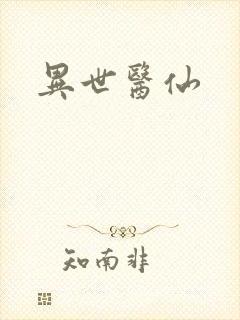 異世醫仙
知南非